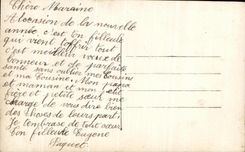 Chère Maraine
A locasion de la nouvelle
année c'est ton filleule
qui vient t'offrir tout
c'est meilleur voeux de
bonneur et de parfaite
santé sans oublier mes cousins
et ma cousine Mon papa
et maman et mon
et petite seul me
charge de vous dire bien
des choses de leurs part
Je t'embrasse de tout coeur
Ton filleule Eugene
Paquet